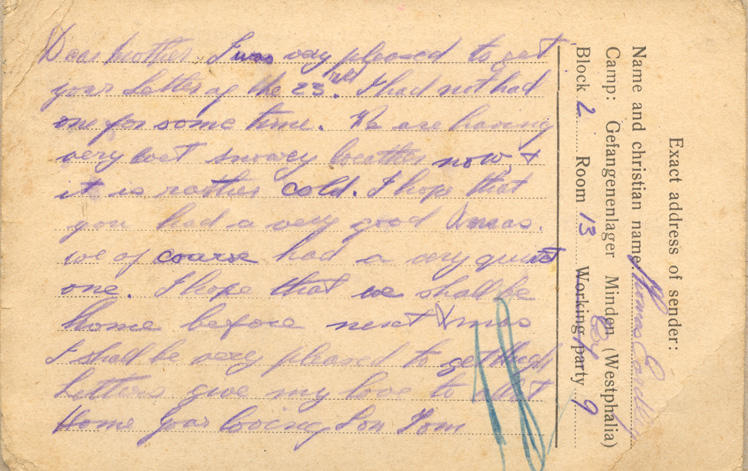 Dear Mother, I was very pleased to get
your letter of the 23rd. I had not had
one for some time. We are having
very wet snowey weather now &
it is rather cold. I hope that
you had a very good Xmas.
we of course had a very quiet
one. I hope that we shall be
home before next Xmas
I shall be very pleased to get
letters give my love to all at
Home your loving Son Tom
Exact address of sender:
Name and christian name: Thomas
Camp: Gefangenenlager Minden (Westphalia)
Block 2 Room 13 Working party 9